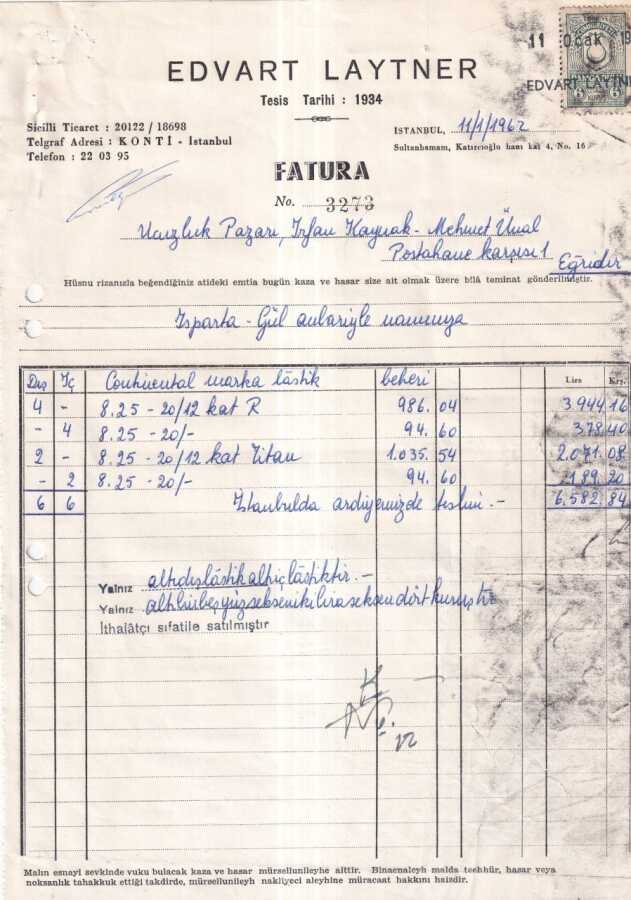 11 Ocak 19
EDVART LAYTNER
EDVART LAYTNE
Tesis Tarihi : 1934
Sicilli Ticaret : 20122 / 18698
Telgraf Adresi : KONTİ - İstanbul
Telefon : 22 03 95
İSTANBUL, 11/1/1962
Sultanhamam, Katırcıoğlu hanı kat 4, No. 16
FATURA
No. 3273
Ucuzluk Pazarı, İrfan Kaynak - Mehmet Ünal
Postahane karşısı 1
Eğridir
Hüsnu rizanızla beğendiğiniz atideki emtia bugün kaza ve hasar size ait olmak üzere bilâ teminat gönderilmiştir.
Isparta - Gül anbariyle namınıza
Dış İç Continental marka lâstik beheri Lira Krş.
4 - 8.25 - 20/12 kat R 986. 04 3.944 16
- 4 8.25 - 20/- 94. 60 378 40
2 - 8.25 - 20/12 kat Titan 1.035. 54 2.071 08
- 2 8.25 - 20/- 94. 60 189 20
6 6 İstanbulda ardiyemizde teslim. - 6.582. 84
Yalnız altıdışlâstikaltıiçlâstiktir. -
Yalnız altıbinbeşyüzsekseniki lira seksendört kuruştur
İthalâtçı sıfatile satılmıştır
Malın esnayi sevkinde vuku bulacak kaza ve hasar mürsellunileyhe aittir. Binaenaleyh malda teehhür, hasar veya
noksanlık tahakkuk ettiği takdirde, mürsellunileyh nakliyeci aleyhine müracaat hakkını haizdir.